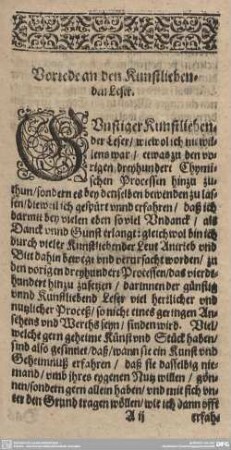 Vorrede an den Kunstlieben-
den Leser.
GVnstiger Kunstlieben-
der Leser / wiewol ich nit wil-
lens war / etwas zu den vo-
rigen dreyhundert Chymi-
schen Processen hinzu zu-
thun / sondern es bey denselben bewenden zu las-
sen / dieweil ich gespürt vnnd erfahren / daß ich
darmit bey vielen eben so viel Vndanck / als
Danck vnnd Gunst erlangt: gleichwol bin ich
durch vieler Kunstliebender Leut Antrieb vnd
Bitt dahin bewegt vnd verursacht worden / zu
den vorigen dreyhundert Processen / das vierdt-
hundert hinzu zusetzen / darinnen der günstig
vnnd Kunstliebend Leser viel herrlicher vnd
nutzlicher Proceß / so nicht eines geringen An-
sehens vnd Werths seyn / finden wird. Viel /
welche gern geheime Künst vnd Stück haben /
sind also gesinnet / daß / wann sie ein Kunst vnd
Geheimnuß erfahren / daß sie dasselbig nie-
mand / vmb ihres eygenen Nutz willen / gön-
nen / sondern gern allein haben / vnd mit sich vn-
ter den Grund tragen wöllen / wie ich dann offt
A ij erfah-